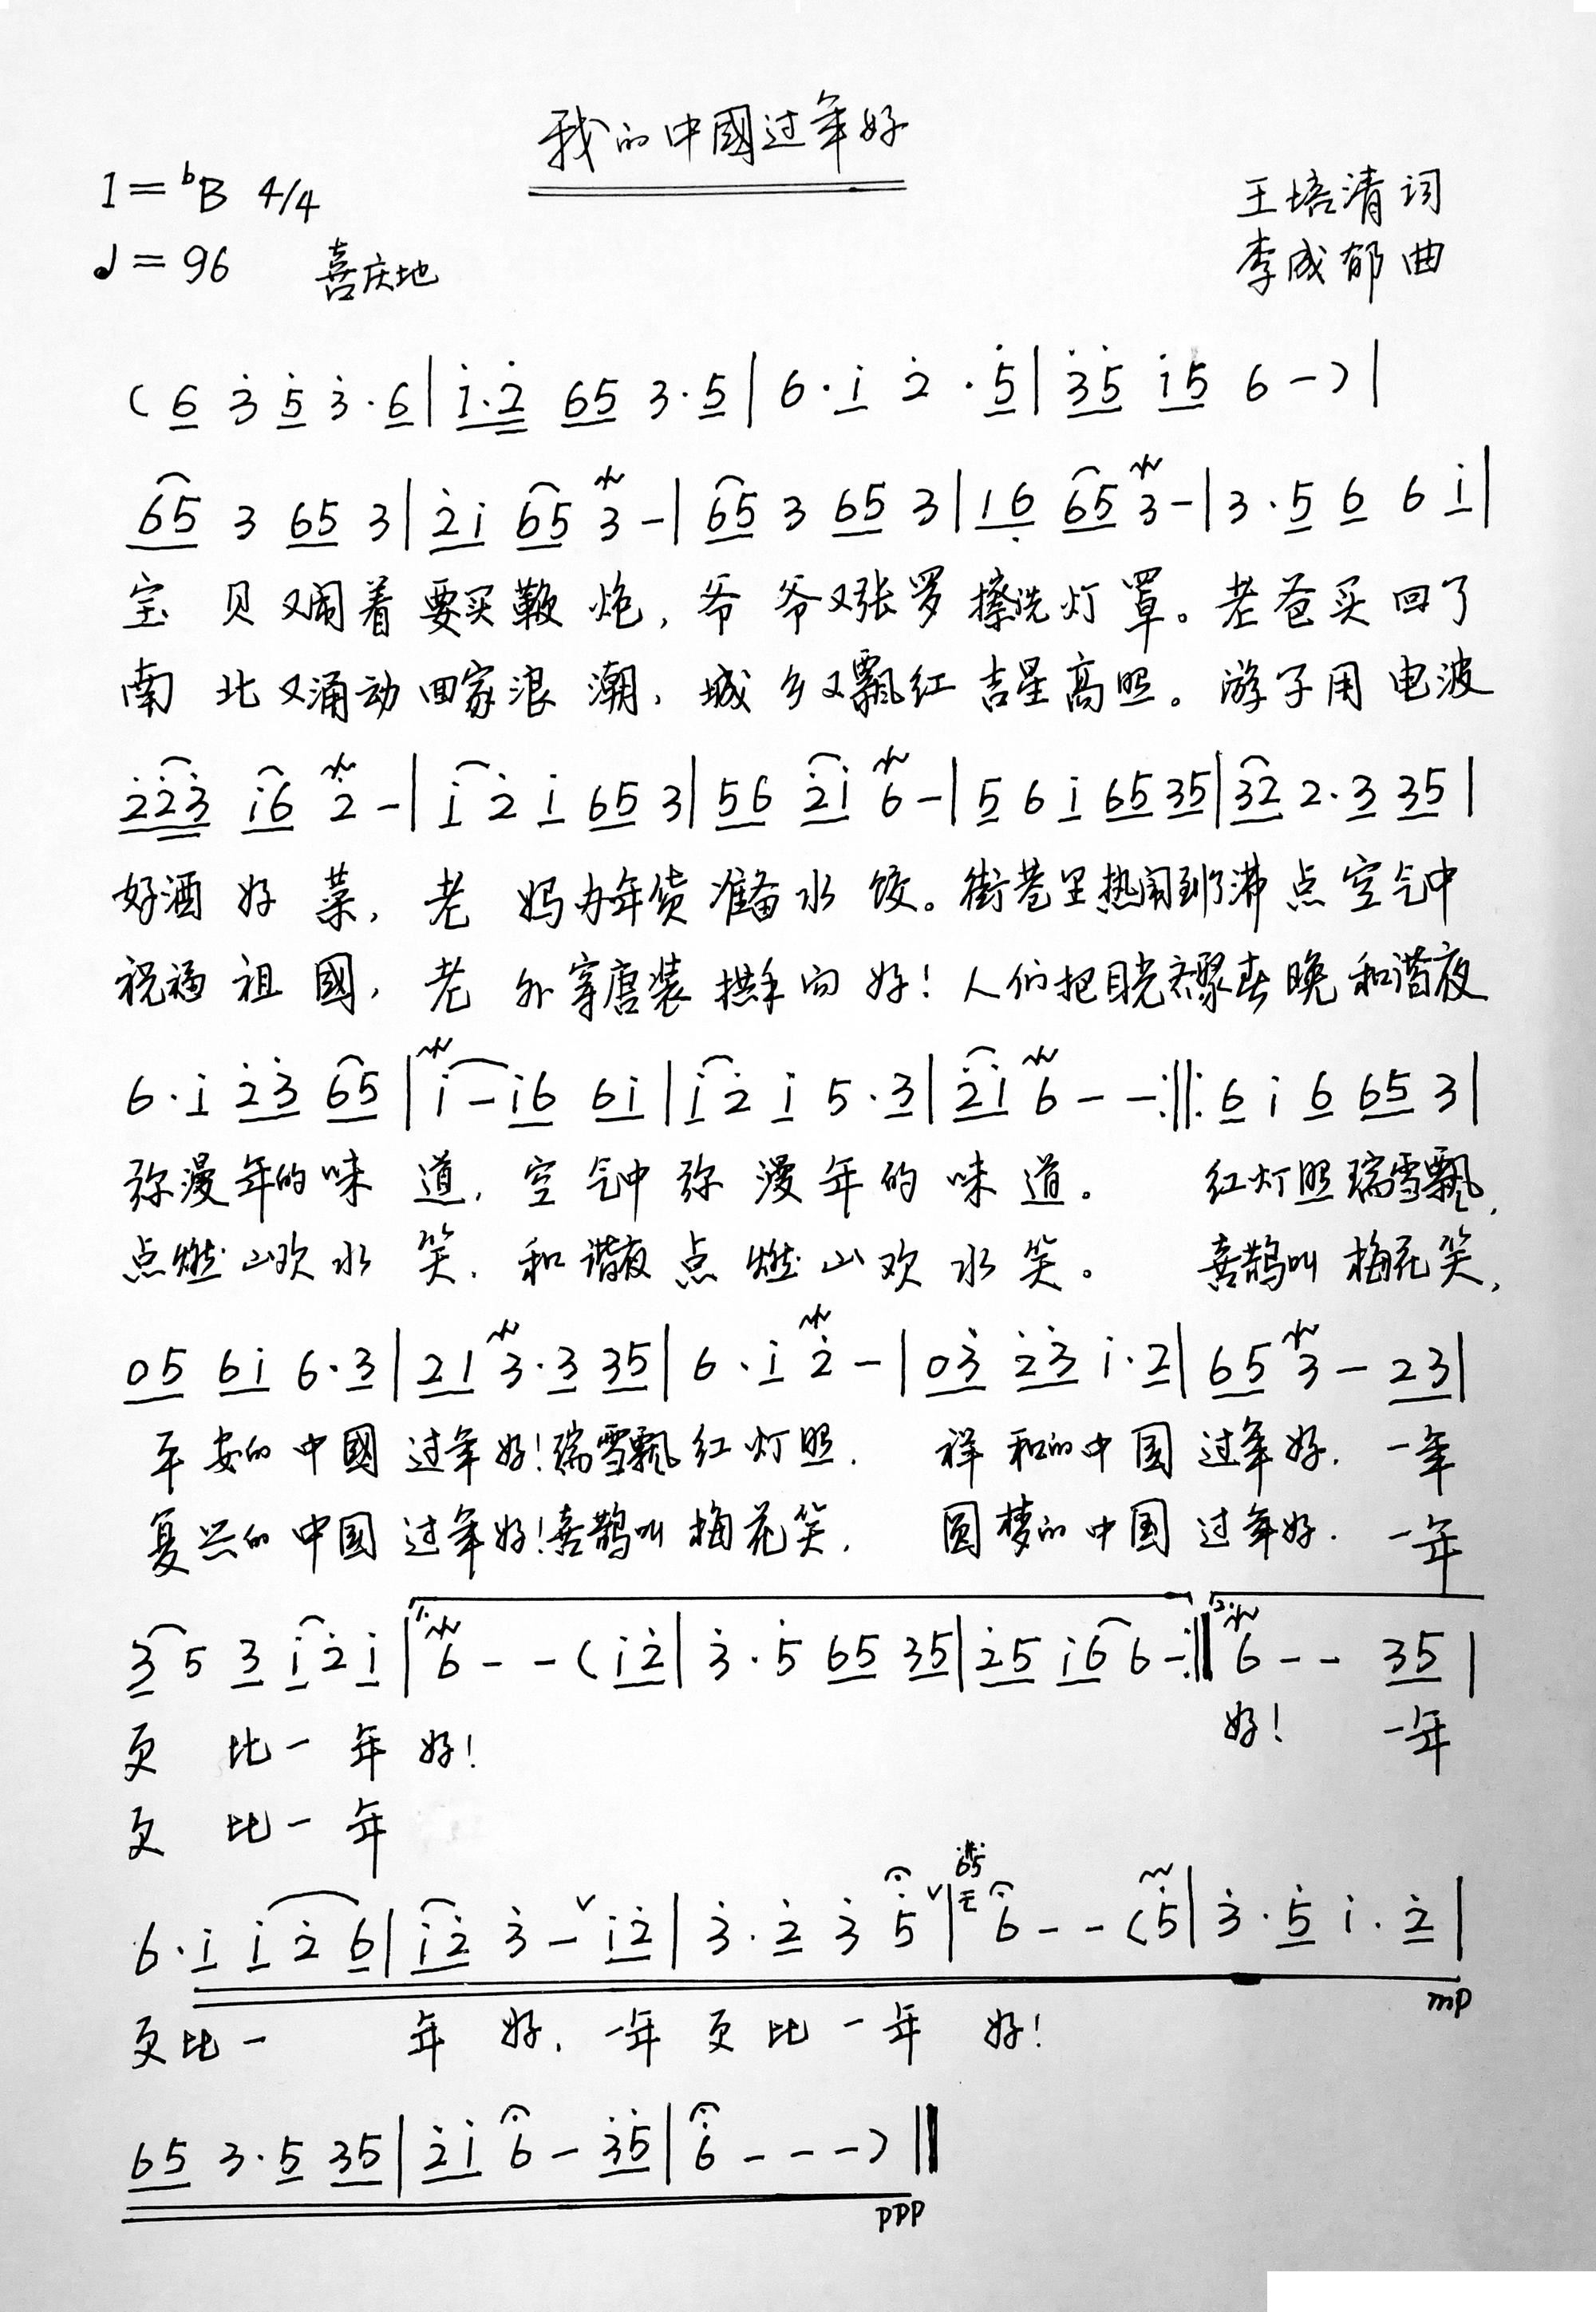 我的中國过年好
1=ᵇB 4/4
王培清 词
♩=96 喜庆地
李成郁 曲
(6 3̇ 5̇ 3̇·6|1̇·2̇ 65 3·5|6·1̇ 2̇·5̇|3̇5̇ 1̇5 6-)|
65 3 65 3|2̇1̇ 65 3-|65 3 65 3|16̣ 65 3-|3·5 6 6 1̇|
宝贝又闹着要买鞭炮,爷爷又张罗擦洗灯罩。老爸买回了
南北又涌动回家浪潮,城乡又飘红吉星高照。游子用电波
2̇2̇3̇ 1̇6 2̇-|1̇ 2̇ 1̇ 65 3|56 2̇1̇ 6-|5 6 1̇ 65 35|32 2·3 35|
好酒好菜,老妈办年货准备水饺。街巷里热闹到了沸点空气中
祝福祖國,老外穿唐装拱手问好!人们把目光聚焦春晚和谐夜
6·1̇ 2̇3̇ 65|1̇-1̇6 61̇|1̇ 2̇ 1̇ 5·3|2̇1̇ 6--:‖:6 1̇ 6 65 3|
弥漫年的味道,空气中弥漫年的味道。红灯照瑞雪飘,
点燃山欢水笑,和谐夜点燃山欢水笑。喜鹊叫梅花笑,
05 61̇ 6·3|21 3·3 35|6·1̇ 2̇-|03̇ 2̇3̇ 1̇·2|65 3-23|
平安的中國过年好!瑞雪飘红灯照,祥和的中国过年好,一年
复兴的中国过年好!喜鹊叫梅花笑,圆梦的中国过年好,一年
3 5 3 1̇ 2̇ 1̇|1. 6--(1̇2̇|3̇·5̇ 65 35|2̇5 1̇6 6-:‖2. 6--35|
更比一年好!好!一年
更比一年
6·1̇ 1̇ 2̇ 6|1̇2̇ 3̇-ˇ1̇2̇|3̇·2̇ 3̇ 5̇ˇ|65 6--(5̇|3̇·5̇ 1̇·2̇|
mp
更比一年好,一年更比一年好!
65 3·5 35|2̇1̇ 6-3̇5̇|6̇---)‖
ppp